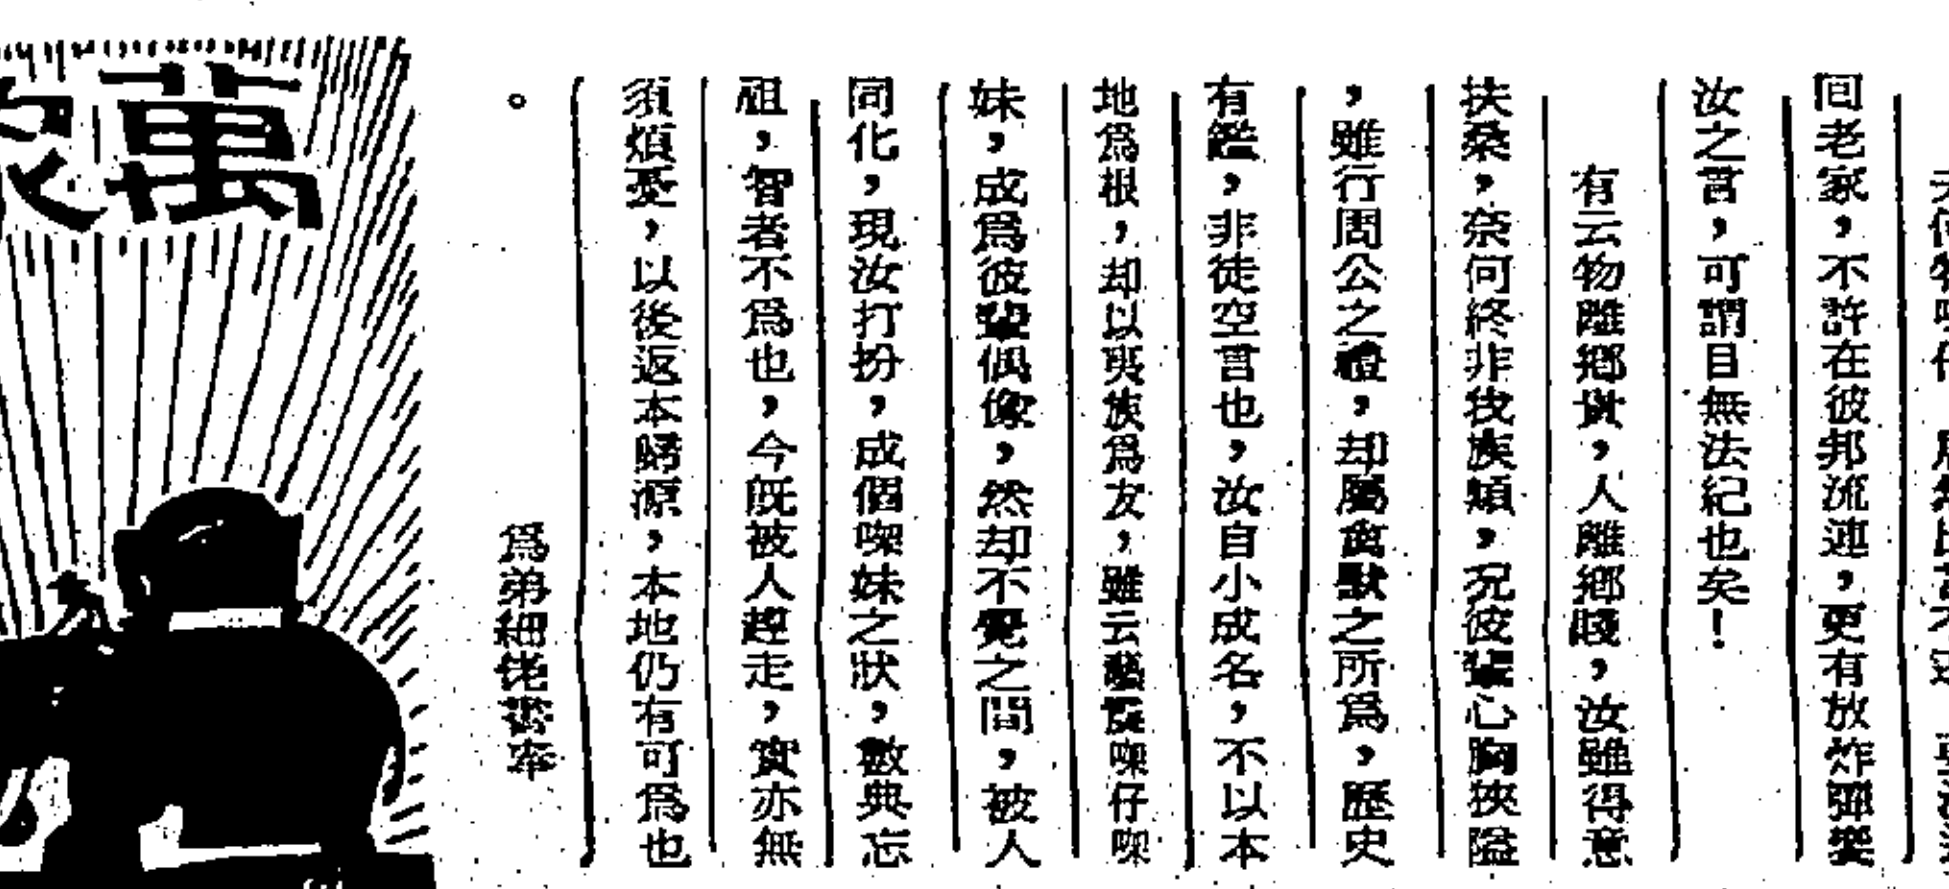 囘老家，不許在彼邦流連，更有放炸彈
汝之言，可謂目無法紀也矣！
有云物離鄉貴，人離鄉賤，汝雖得意
扶桑，奈何終非我族類，況彼輩心胸狹隘
，雖行周公之禮，却屬禽獸之所爲，歷史
有鑑，非徒空言也，汝自小成名，不以本
地爲根，却以夷族爲友，雖云藝員㗎仔㗎
妹，成爲彼輩偶像，然却不覺之間，被人
同化，現汝打扮，成個㗎妹之狀，數典忘
祖，智者不爲也，今旣被人趕走，實亦無
須煩憂，以後返本歸源，本地仍有可爲也
。
爲弟細佬書奉
萬